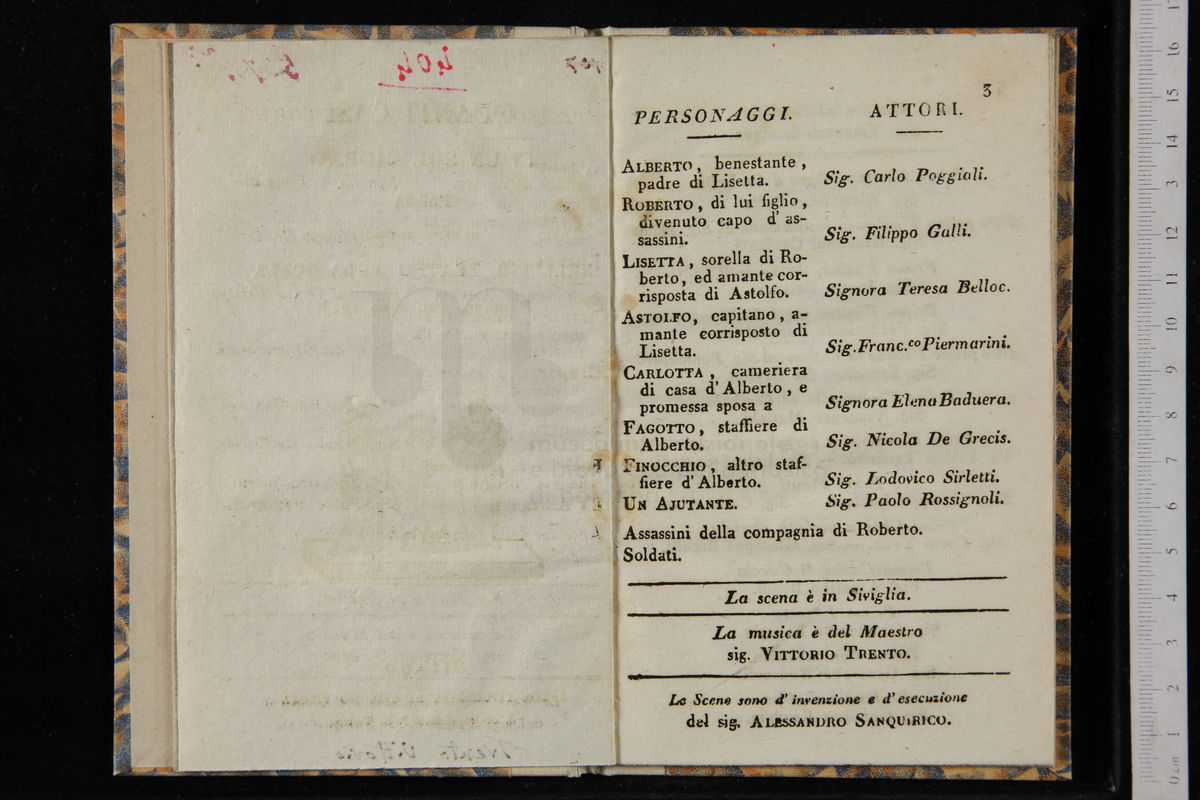 404
3
PERSONAGGI. ATTORI.
ALBERTO, benestante,
padre di Lisetta. Sig. Carlo Poggiali.
ROBERTO, di lui figlio,
divenuto capo d' as-
sassini. Sig. Filippo Galli.
LISETTA, sorella di Ro-
berto, ed amante cor-
risposta di Astolfo. Signora Teresa Belloc.
ASTOLFO, capitano, a-
mante corrisposto di
Lisetta. Sig. Franc.co Piermarini.
CARLOTTA, cameriera
di casa d' Alberto, e
promessa sposa a Signora Elena Baduera.
FAGOTTO, staffiere di
Alberto. Sig. Nicola De Grecis.
FINOCCHIO, altro staf-
fiere d' Alberto. Sig. Lodovico Sirletti.
UN AJUTANTE. Sig. Paolo Rossignoli.
Assassini della compagnia di Roberto.
Soldati.
La scena è in Siviglia.
La musica è del Maestro
sig. VITTORIO TRENTO.
Le Scene sono d' invenzione e d' esecuzione
del sig. ALESSANDRO SANQUIRICO.
Trento Vittorio
0 cm 1 2 3 4 5 6 7 8 9 10 11 12 13 14 15 16 17